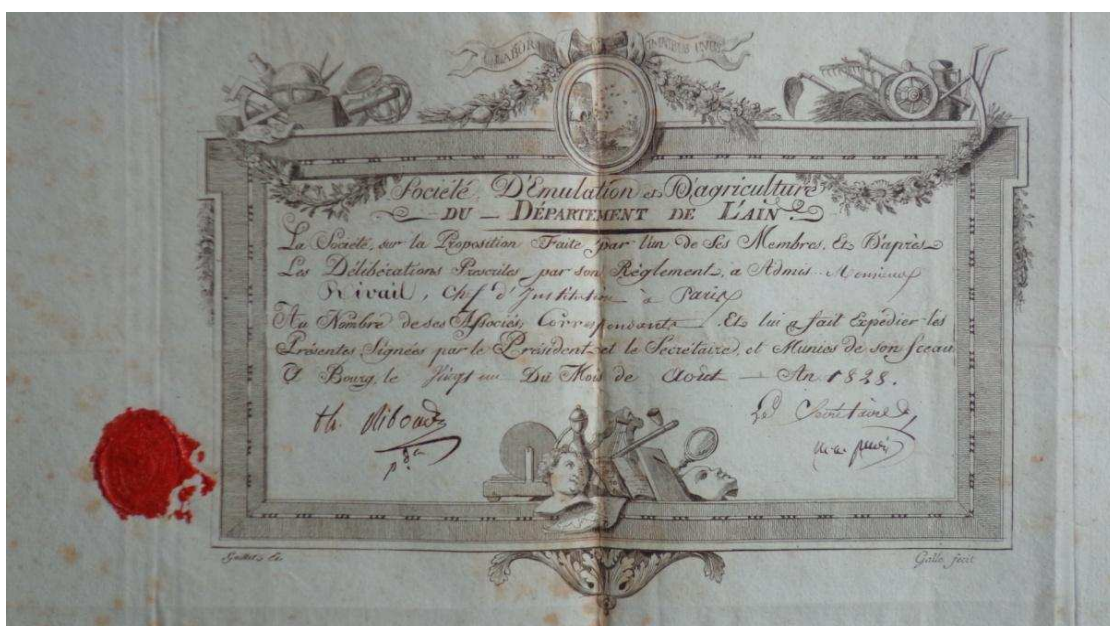 LABOR OMNIBUS UNUS
Société D'Emulation et D'agriculture
DU — DÉPARTEMENT DE L'AIN
La Societé, sur la Proposition Faite par l'un de Ses Membres, Et D'après
Les Délibérations Prescrites par son Réglement, a Admis Monsieur
Rivail, Chef d'Institution à Paris
Au Nombre de ses Associés Correspondants Et lui a fait Expédier les
Présentes Signées par le Président et le Secrétaire, et Munies de son sceau
A Bourg, le Vingt un Du Mois de Août — An 1828.
th. Riboud
Le Secrétaire
Galle fecit